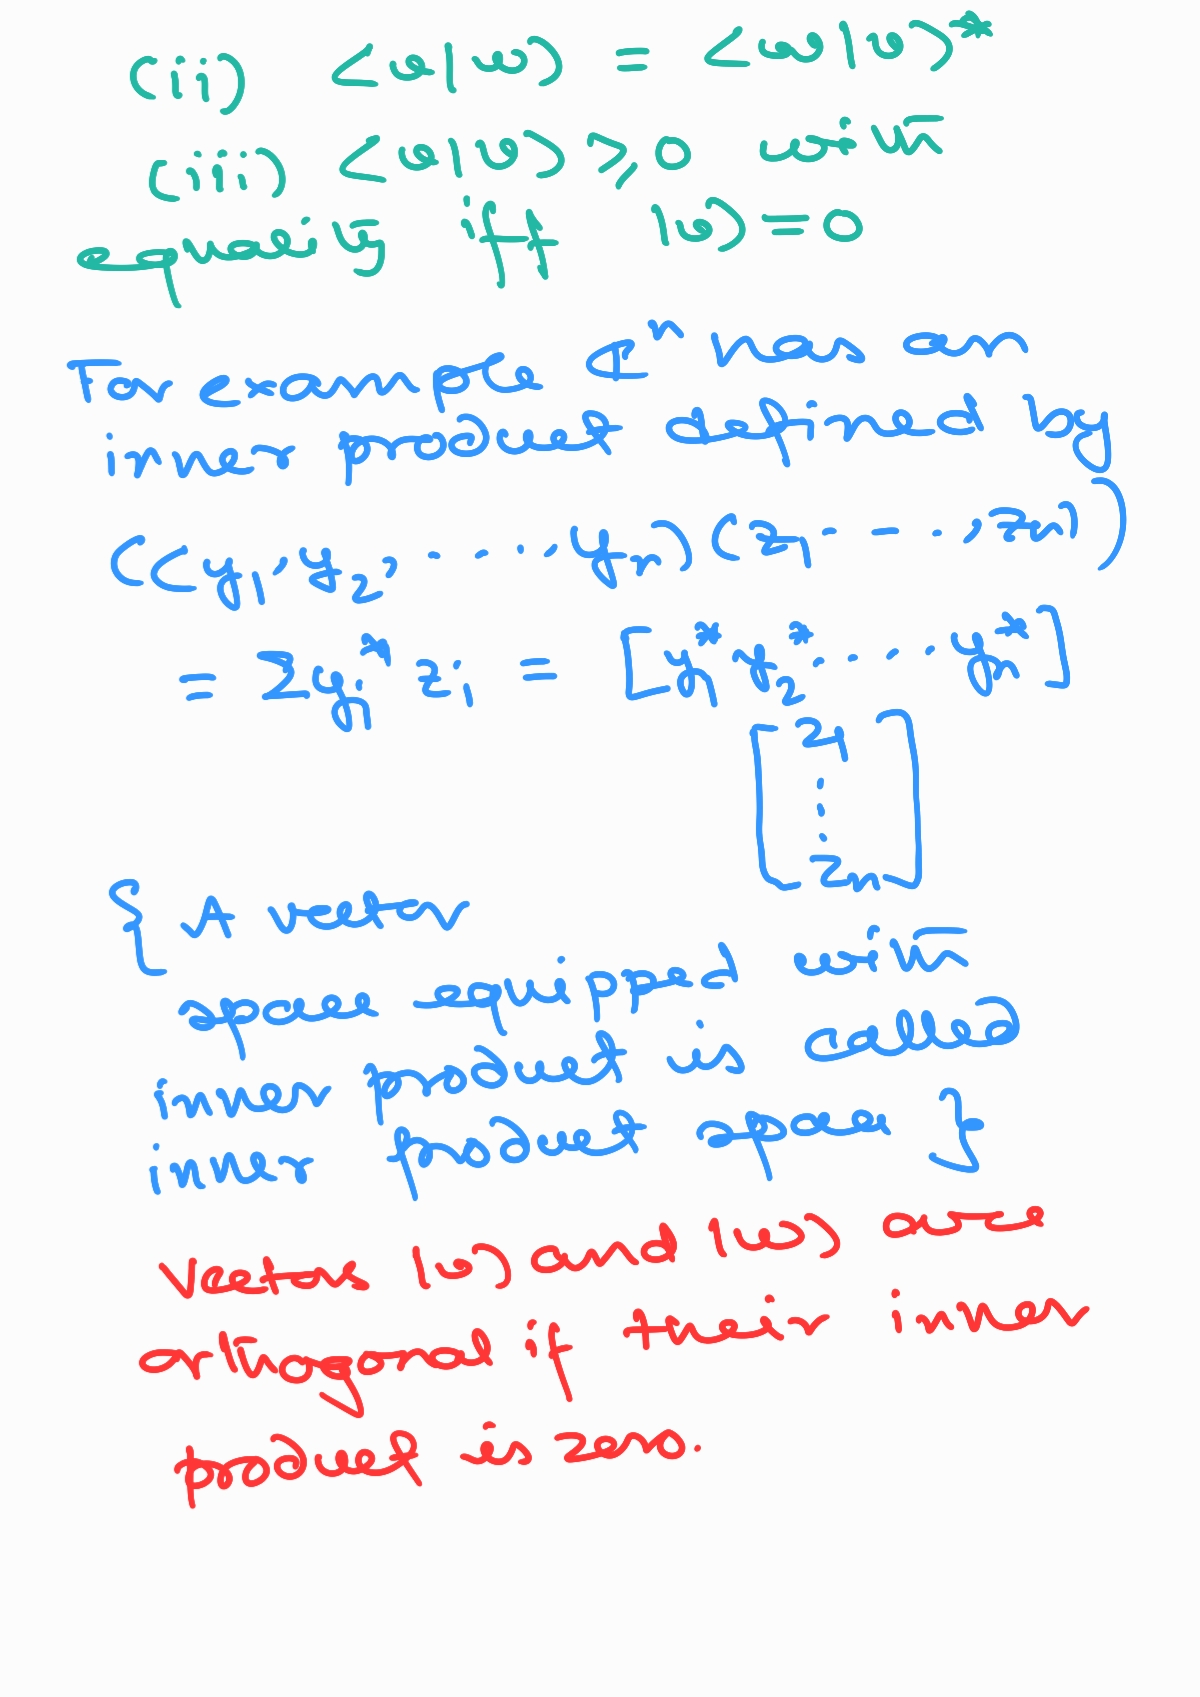 (ii) <v|w> = <w|v>*
(iii) <v|v> ⩾ 0 with
equality iff |v> = 0
For example ℂⁿ has an
inner product defined by
((y₁, y₂, ...., yₙ) (z₁, - - .., zₙ))
= Σ yᵢ* zᵢ = [y₁* y₂* ..... yₙ*]
[z₁
⋮
zₙ]
{ A vector
space equipped with
inner product is called
inner product space }
Vectors |v> and |w> are
orthogonal if their inner
product is zero.